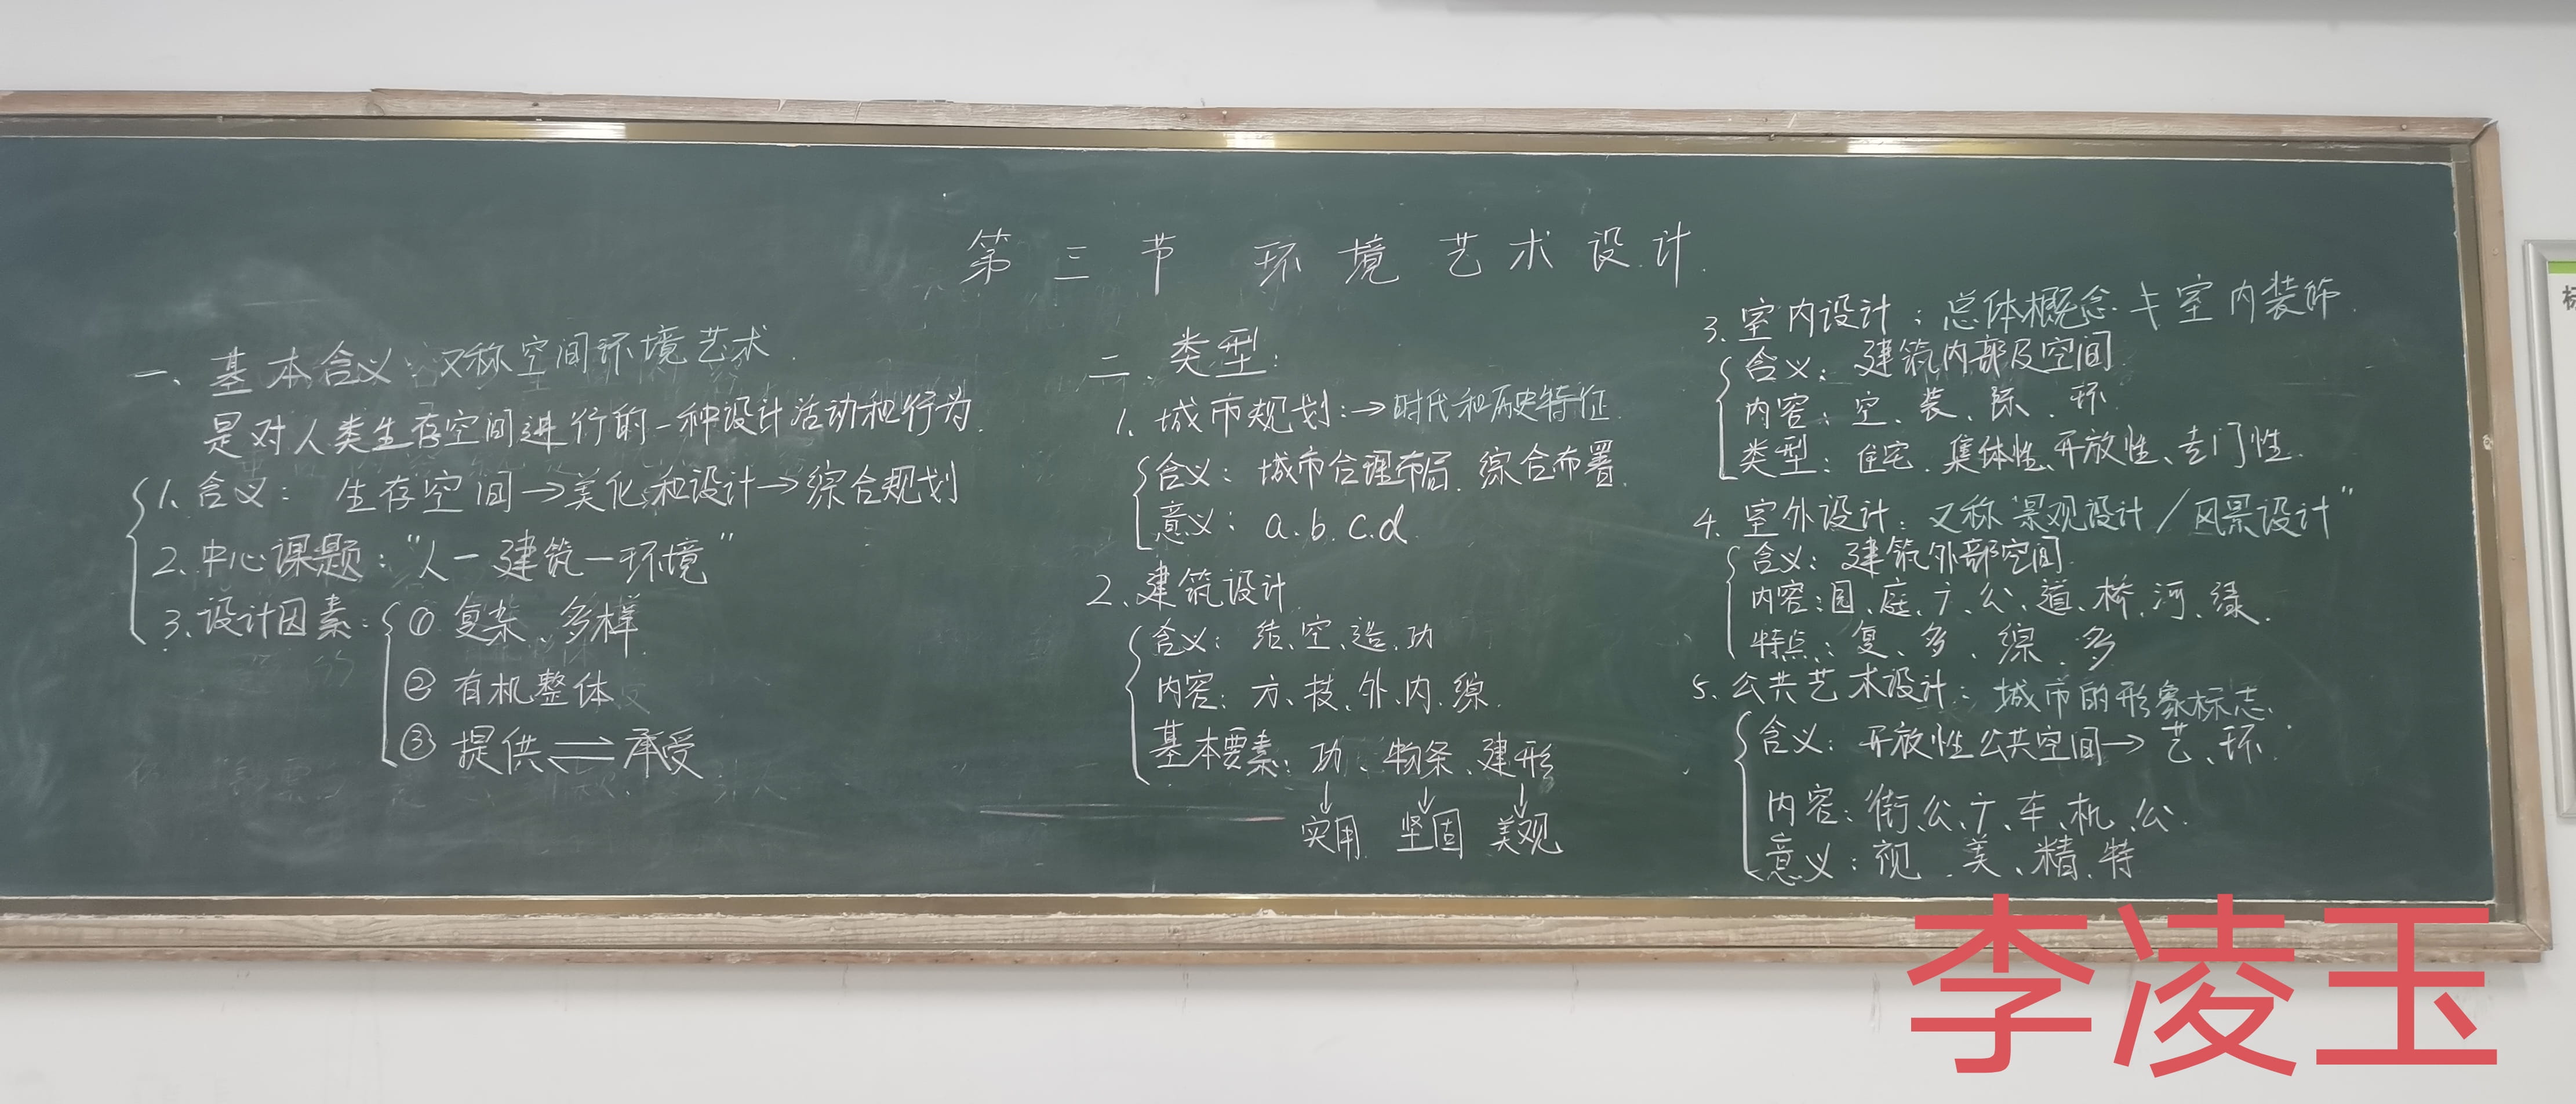 第三节 环境艺术设计
一、基本含义：又称空间环境艺术.
是对人类生存空间进行的一种设计活动和行为.
1、含义： 生存空间→美化和设计→综合规划
2、中心课题：“人—建筑—环境”
3、设计因素：① 复杂、多样
② 有机整体
③ 提供⇌承受
二、类型：
1、城市规划：→时代和历史特征.
含义：城市合理布局. 综合布置.
意义：a.b.c.d.
2、建筑设计
含义：结、空、造、功
内容：方、技、外、内、综.
基本要素：功、物条、建形
↓ ↓ ↓
实用 坚固 美观
3. 室内设计：总体概念 室内装饰.
含义：建筑内部及空间.
内容：空、装、陈、环.
类型：住宅. 集体性、开放性、专门性.
4. 室外设计：又称“景观设计/风景设计”
含义：建筑外部空间.
内容：园、庭、广、公、道、桥、河、绿.
特点：复、多、综、多
5. 公共艺术设计：城市的形象标志.
含义：开放性公共空间→艺、环.
内容：街、公、广、车、机、公.
意义：视、美、精、特
李凌玉